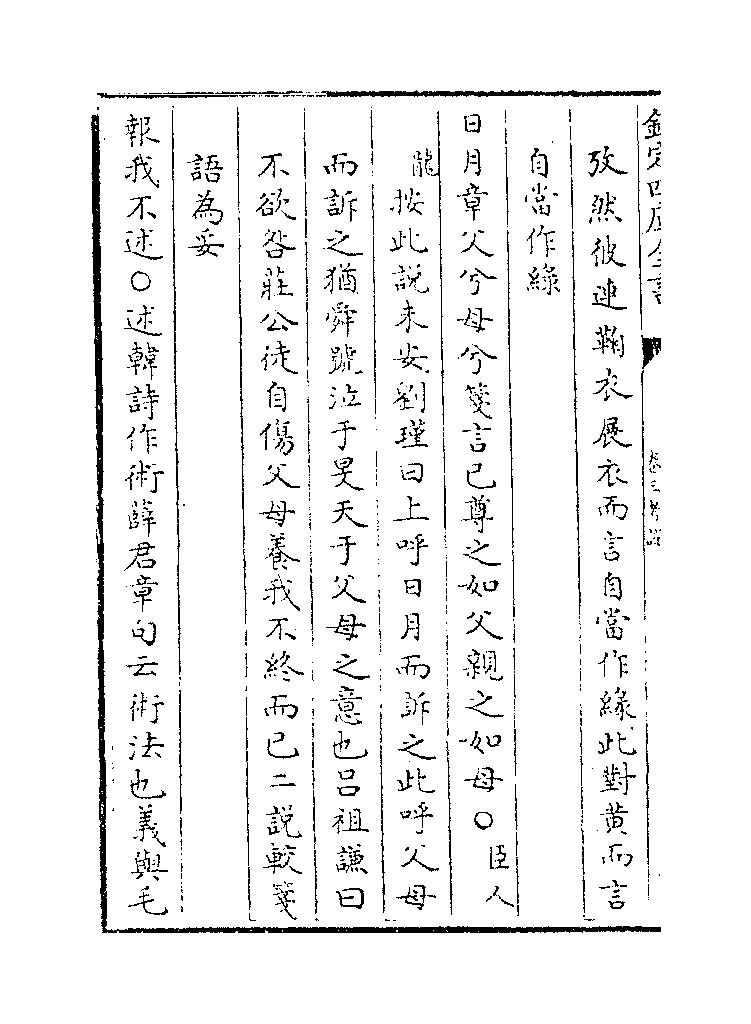 欽定四庫全書
卷三考證
攷然彼連鞠衣展衣而言自當作緣此對黄而言
自當作綠
日月章父兮母兮箋言己尊之如父親之如母〇臣人
龍按此說未安劉瑾曰上呼日月而訴之此呼父母
而訴之猶舜號泣于旻天于父母之意也吕祖謙曰
不欲咎莊公徒自傷父母養我不終而已二說較箋
語為妥
報我不述〇述韓詩作術薛君章句云術法也義與毛